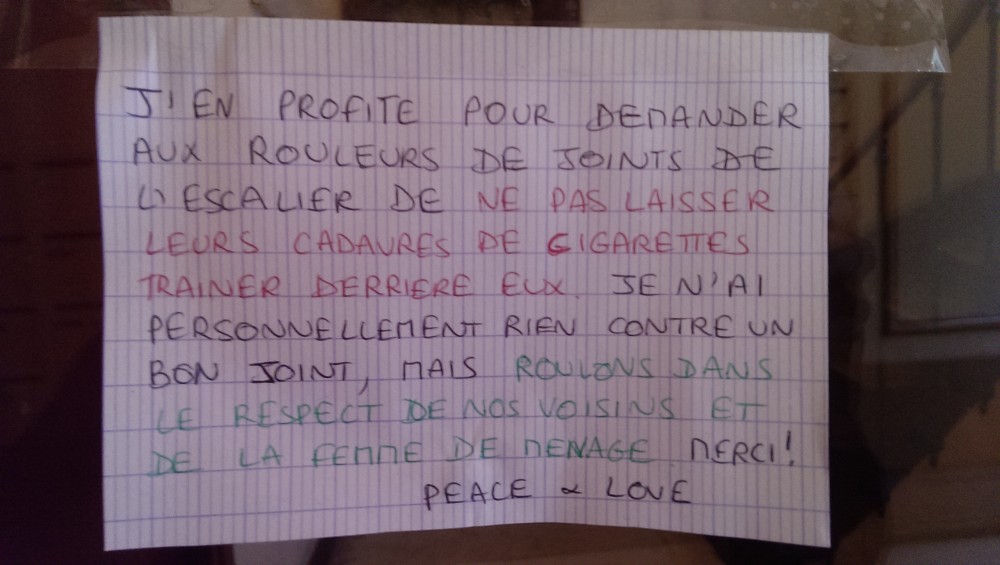 J'EN PROFITE POUR DEMANDER
AUX ROULEURS DE JOINTS DE
L'ESCALIER DE NE PAS LAISSER
LEURS CADAVRES DE CIGARETTES
TRAINER DERRIERE EUX. JE N'AI
PERSONNELLEMENT RIEN CONTRE UN
BON JOINT, MAIS ROULONS DANS
LE RESPECT DE NOS VOISINS ET
DE LA FEMME DE MENAGE MERCI!
PEACE & LOVE